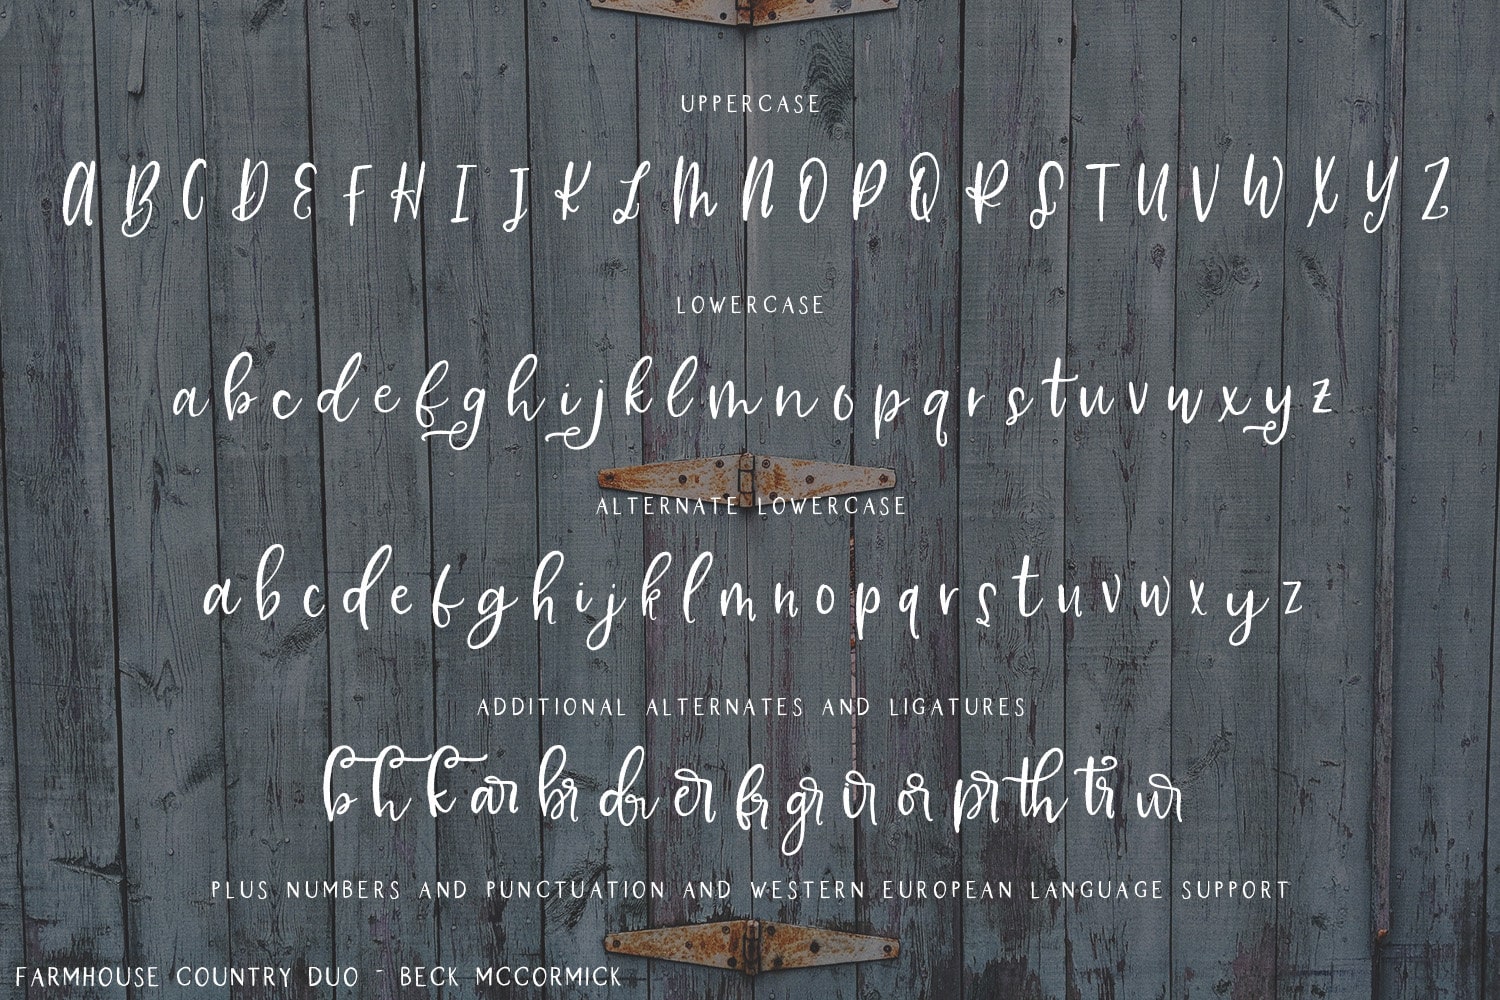 UPPERCASE
A B C D E F H I J K L M N O P Q R S T U V W X Y Z
LOWERCASE
a b c d e f g h i j k l m n o p q r s t u v w x y z
ALTERNATE LOWERCASE
a b c d e f g h i j k l m n o p q r s t u v w x y z
ADDITIONAL ALTERNATES AND LIGATURES
b h k ar br dr er fr gr ir or pr th tr ur
PLUS NUMBERS AND PUNCTUATION AND WESTERN EUROPEAN LANGUAGE SUPPORT
FARMHOUSE COUNTRY DUO - BECK MCCORMICK